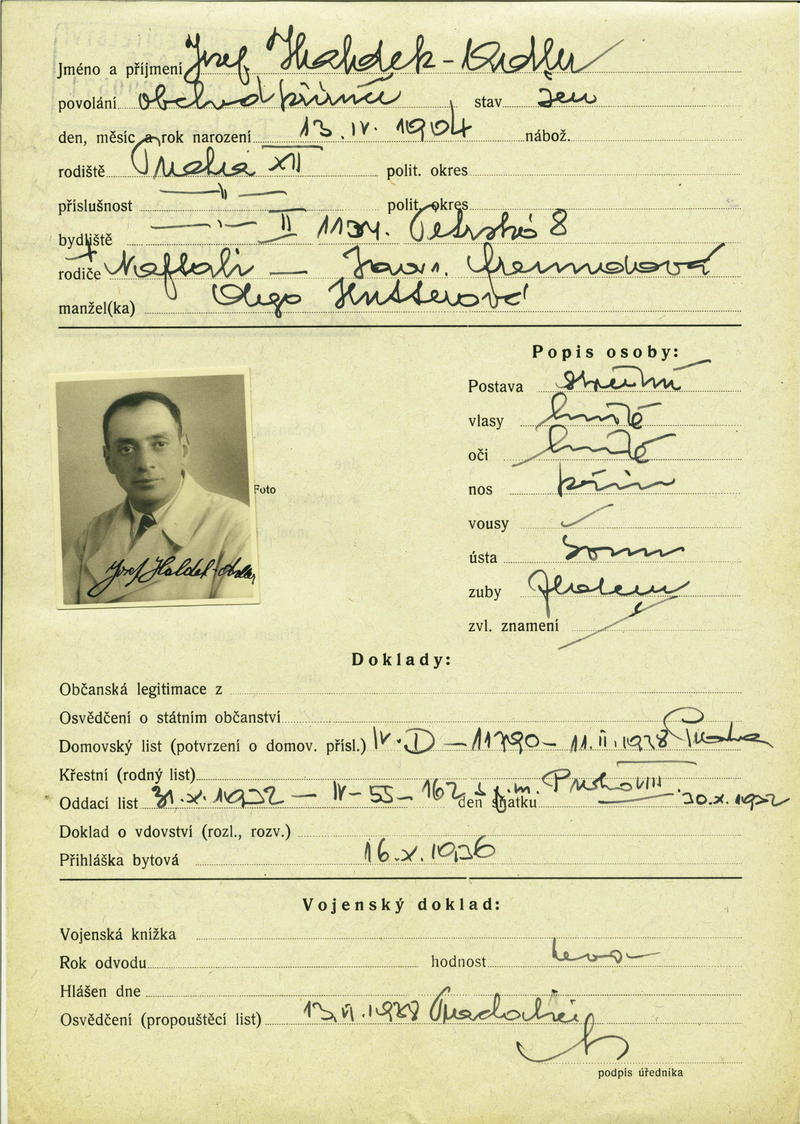 Jméno a příjmení Josef Haldek-Adler
povolání obchod příručí stav žen
den, měsíc a rok narození 13. IV. 1904 nábož.
rodiště Praha XII polit. okres
příslušnost —"— polit. okres
bydliště —"— II 1134. Petrská 8
rodiče Naftali —
manžel(ka) Olga Hutterová
Popis osoby:
Postava střední
vlasy hnědé
oči hnědé
nos přím
vousy
ústa
zuby
zvl. znamení
Foto
Josef Haldek-Adler
Doklady:
Občanská legitimace z
Osvědčení o státním občanství
Domovský list (potvrzení o domov. přísl.) IV. D — 11790 — 11. II. 1928 Praha
Křestní (rodný list)
Oddací list 31. X. 1932 — IV — 55 — 162 den sňatku 30. X. 1932
Doklad o vdovství (rozl., rozv.)
Přihláška bytová 16. X. 1936
Vojenský doklad:
Vojenská knížka
Rok odvodu hodnost
Hlášen dne
Osvědčení (propouštěcí list)
podpis úředníka